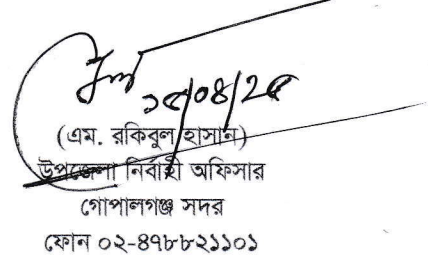 ১৫/০৪/২৫
(এম. রকিবুল হাসান)
উপজেলা নির্বাহী অফিসার
গোপালগঞ্জ সদর
ফোন ০২-৪৭৮৮২১১০১